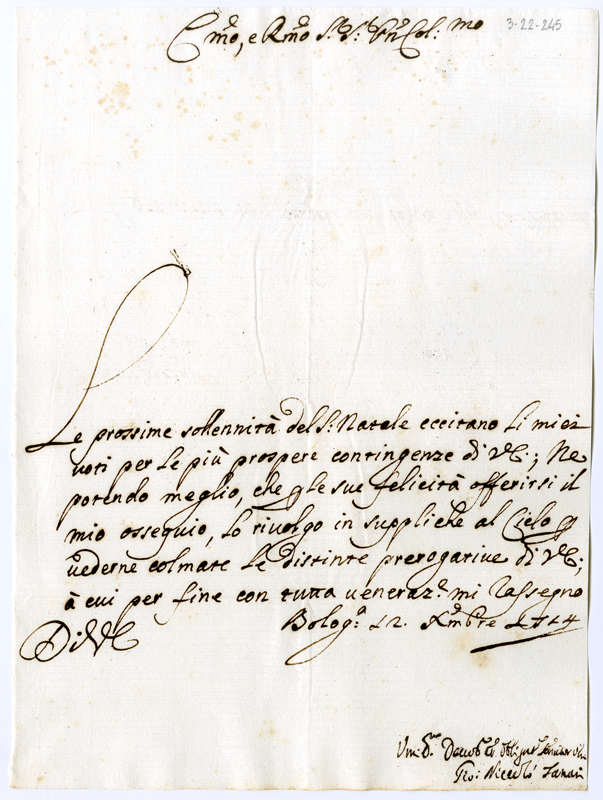 Emo, e Rmo Sr. Sr. Pn Col: mo
3-22-245
Le prossime sollennità del S. Natale eccitano li miei
voti per le più prospere contingenze di VE.; Ne
potendo meglio, che p le sue felicità offerirsi il
mio ossequio, lo rivolgo in suppliche al Cielo p
vederne colmate le distinte prerogative di VE;
à cui per fine con tutta veneraz.e mi rassegno
Di VE
Bolog.a 12. Xmbre 1714
Um: D.mo Devot
Gio: Niccolò Tanari